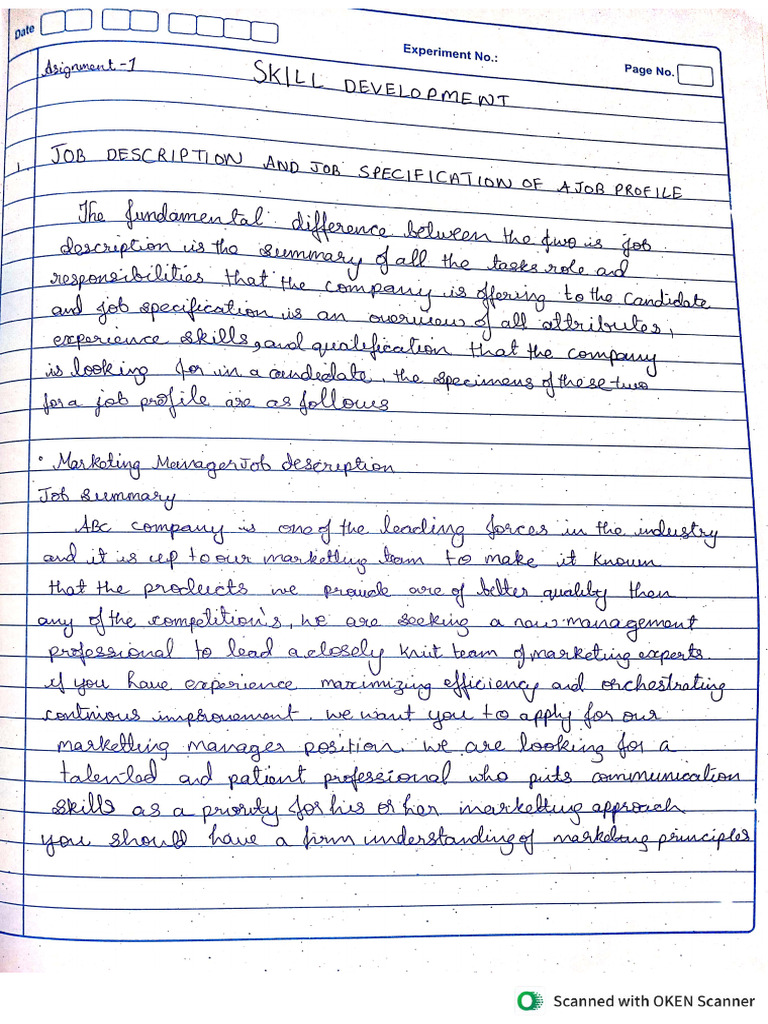 Date
Experiment No.:
Page No.
Asignment-1
SKILL DEVELOPMENT
1. JOB DESCRIPTION AND JOB SPECIFICATION OF A JOB PROFILE
The fundamental difference between the two is job
description is the summary of all the tasks role and
responsibilities that the company is offering to the candidate
and job specification is an overview of all attributes,
experience skills, and qualification that the company
is looking for in a candidate, the specimens of these two
for a job profile are as follows
• Marketing Manager Job description
Job Summary
ABC company is one of the leading forces in the industry
and it is up to our marketing team to make it known
that the products we provide are of better quality then
any of the competition's, we are seeking a new management
professional to lead a closely knit team of marketing experts.
if you have experience maximizing efficiency and orchestrating
continious improvement. we want you to apply for our
marketting manager position. we are looking for a
talented and patient professional who puts communication
skills as a priority for his or her marketting approach
you should have a firm understanding of marketing principles
Scanned with OKEN Scanner